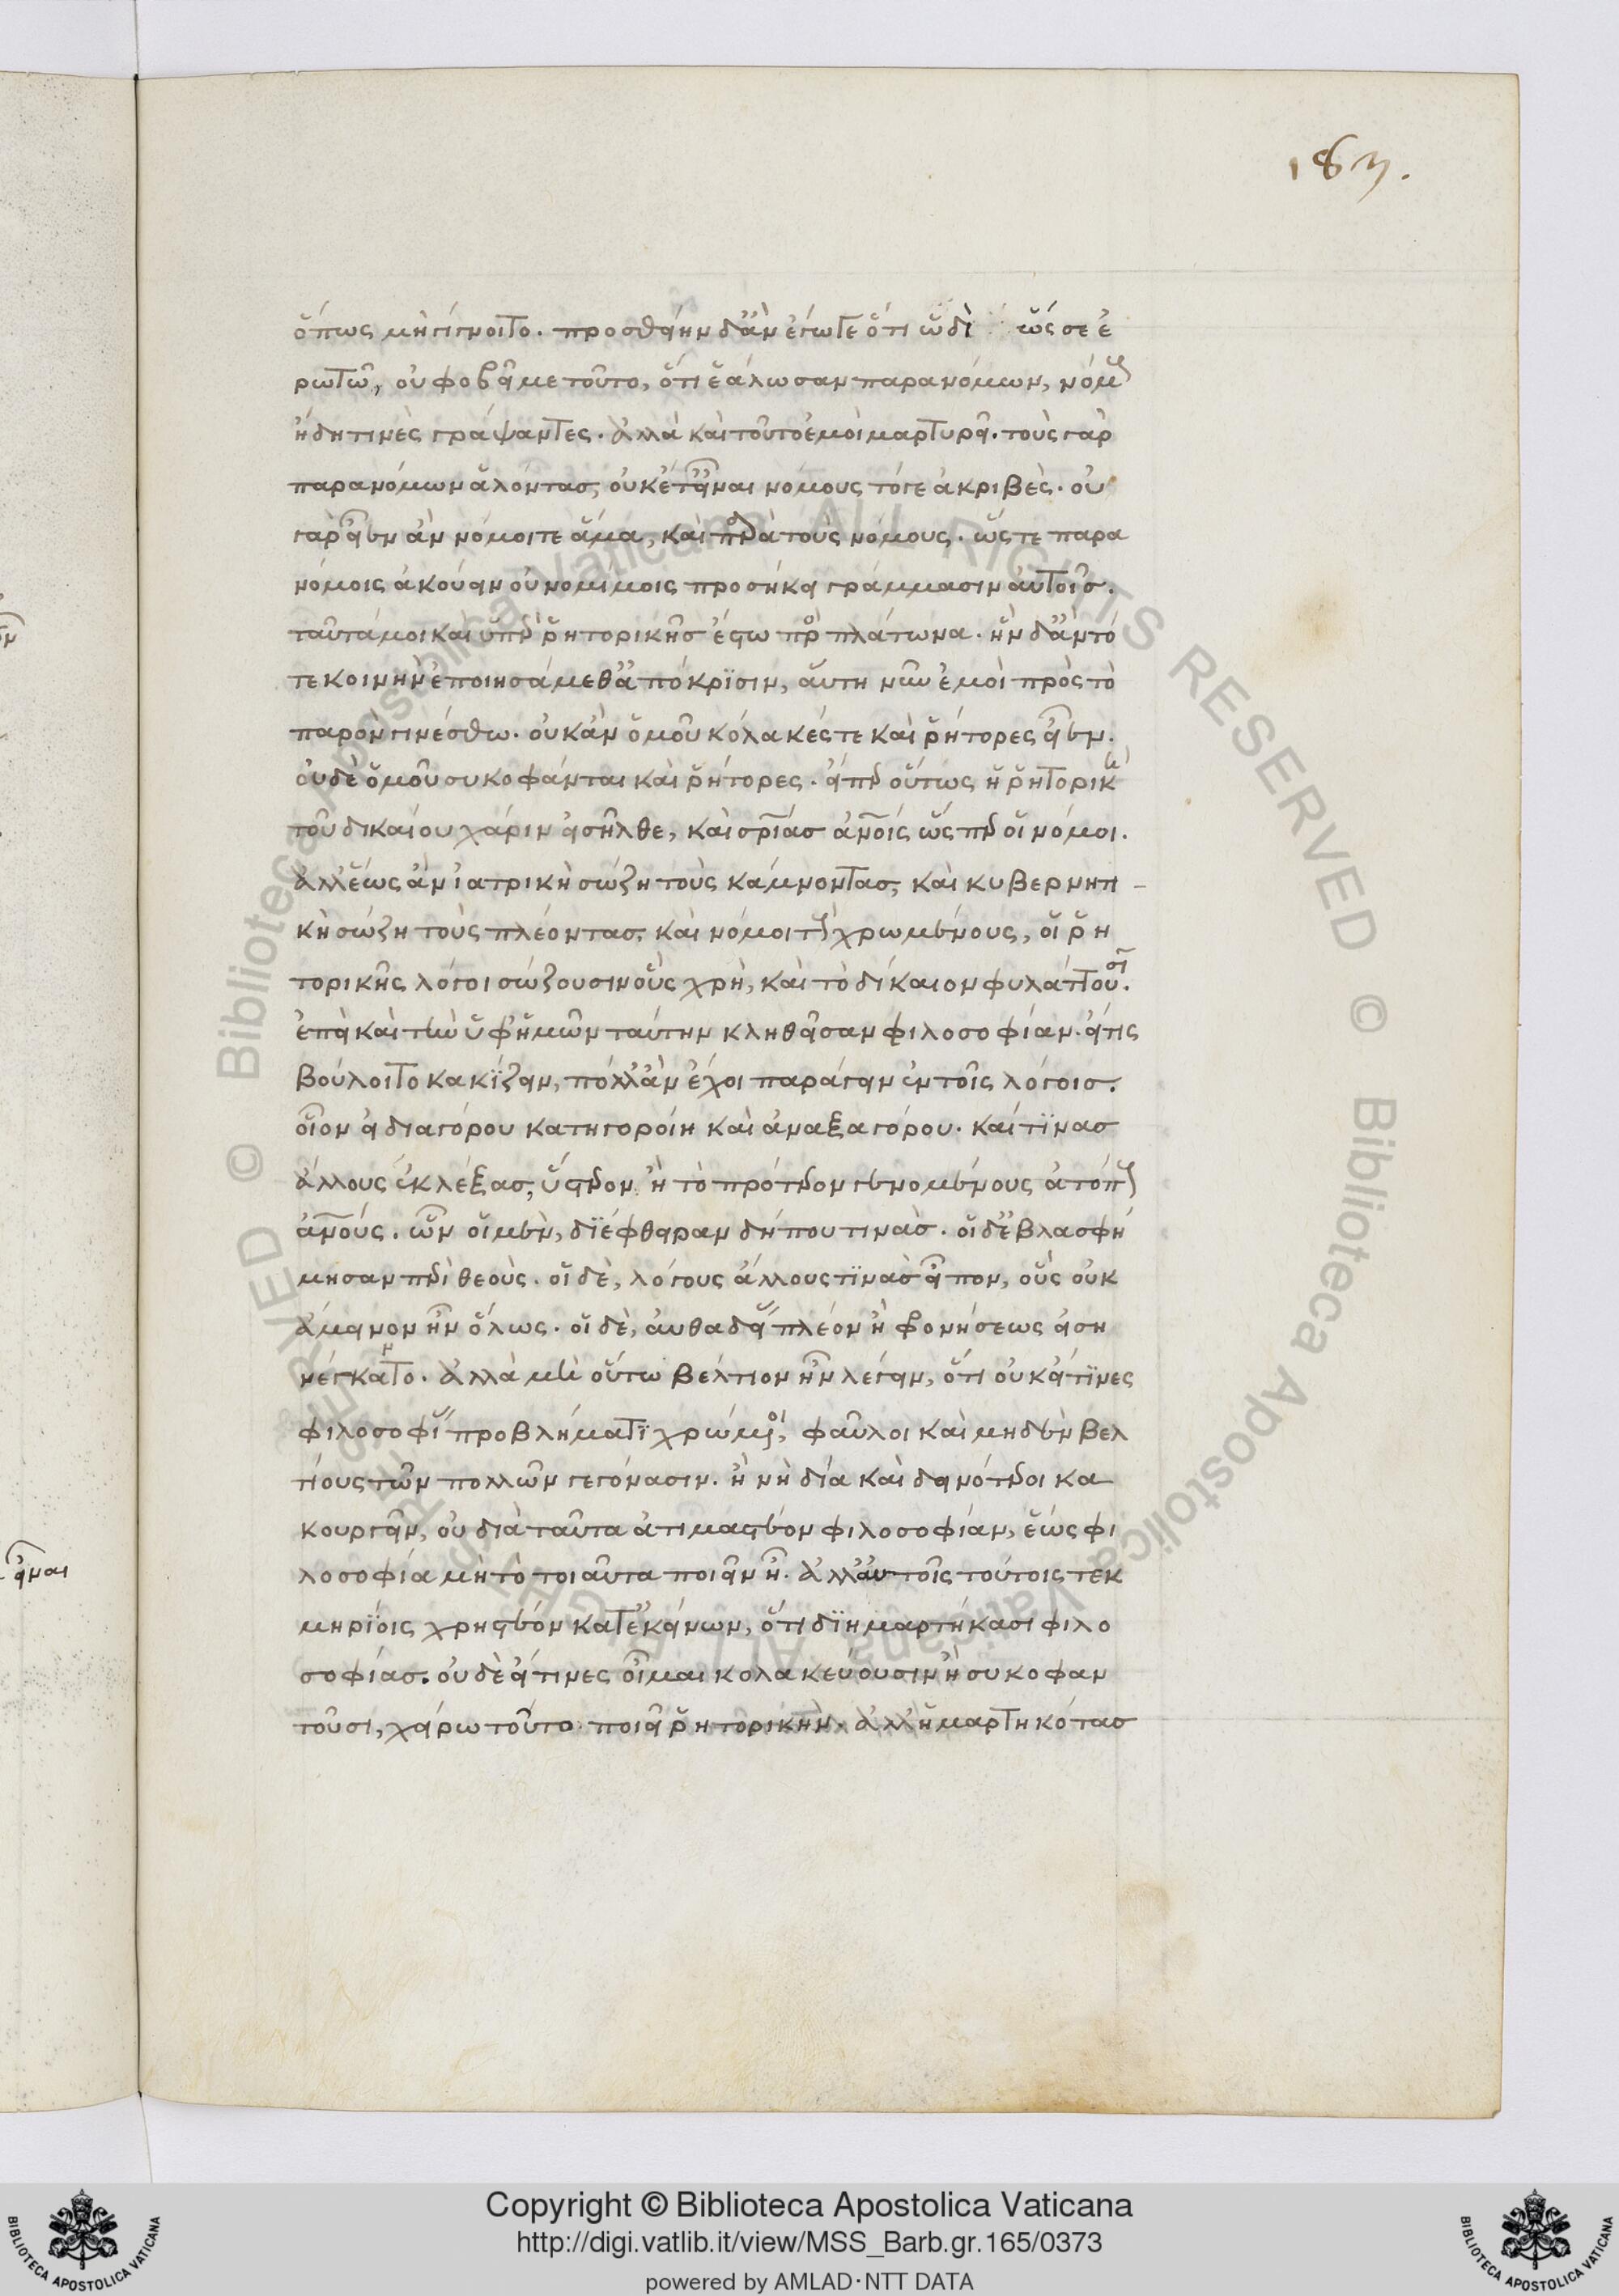 183.
ὅπως μὴ γίγνοιτο. προσθείην δ' ἂν ἔγωγε ὅτι ὧδὶ ὥς σε ἐ
ρωτῶ, οὐ φοβεῖ με τοῦτο, ὅτι ἑάλωσαν παρανόμων, νόμους
ἤδη τινὲς γράψαντες. ἀλλὰ καὶ τοῦτο ἐμοὶ μαρτυρεῖ. τοὺς γὰρ
παρανόμων ἁλόντας, οὐκ ἔτ' εἶναι νόμους τό γε ἀκριβὲς. οὐ
γὰρ εἶεν ἂν νόμοι τε ἅμα, καὶ παρὰ τοὺς νόμους. ὥς τε παρα
νόμοις ἀκούειν οὐ νομίμοις προσήκει γράμμασιν αὐτοῖς.
ταῦτά μοι καὶ ὑπὲρ ῥητορικῆς ἔστω πρὸς πλάτωνα. ἣν δ' ἂν τό
τε κοινὴν ἐποιησάμεθ' ἀπόκρϊσιν, αὕτη νῦν ἐμοὶ πρὸς τὸ
παρὸν γινέσθω. οὐκ ἂν ὁμοῦ κόλακές τε καὶ ῥήτορες εἶεν.
οὐδὲ ὁμοῦ συκοφάνται καὶ ῥήτορες. εἴπερ οὕτως ἡ ῥητορικὴ
τοῦ δικαίου χάριν εἰσῆλθε, καὶ σρίας ἀνοις ὥς περ οἱ νόμοι.
ἀλλ' ἕως ἂν ἰατρικὴ σώζη τοὺς κάμνοντας, καὶ κυβερνητι
κὴ σώζη τοὺς πλέοντας, καὶ νόμοι τοὺς χρωμένους, οἱ ῥη
τορικῆς λόγοι σώζουσιν οὓς χρὴ, καὶ τὸ δίκαιον φυλάττουσι.
ἐπεὶ καὶ τὴν ὑφ' ἡμῶν ταύτην κληθεῖσαν φιλοσοφίαν. εἴ τις
βούλοιτο κακίζειν, πόλλ' ἂν ἔχοι παράγειν ἐν τοῖς λόγοις.
οἷον εἰ διαγόρου κατηγοροίη καὶ ἀναξαγόρου. καί τϊνας
ἄλλους ἐκλέξας, ὕστερον ἢ τὸ πρότερον γενομένους ἀτόπους
ἀνους. ὧν οἱ μὲν, δϊέφθειραν δήπου τινὰς. οἱ δ' ἐβλασφή
μησαν περὶ θεοὺς. οἱ δὲ, λόγους ἄλλους τϊνὰς εἶπον, οὓς οὐκ
ἄμεινον ἦν ὅλως. οἱ δὲ, αὐθαδείας πλέον ἢ φρονήσεως εἰση
νέγκαντο. ἀλλὰ μὴ οὕτω βέλτιον ἦν λέγειν, ὅτι οὐκ εἴ τϊνες
φιλοσοφίας προβλήματϊ χρώμενοι, φαῦλοι καὶ μηδὲν βελ
τίους τῶν πολλῶν γεγόνασιν. ἢ νὴ δία καὶ δεινότεροι κα
κουργεῖν, οὐ διὰ ταῦτα ἀτιμαστέον φιλοσοφίαν, ἕως φι
λοσοφία μὴ τὸ τοιαῦτα ποιεῖν ἦ. ἀλλ' αὐτοῖς τούτοις τεκ
μηρΐοις χρηστέον κατ' ἐκείνων, ὅτι δϊημαρτήκασι φιλο
σοφίας. οὐδὲ εἴ τινες οἶμαι κολακεύουσιν ἢ συκοφαν
τοῦσι, χείρω τοῦτο ποιεῖ ῥητορικὴν. ἀλλ' ἡμαρτηκότας
εἶναι
Copyright © Biblioteca Apostolica Vaticana
http://digi.vatlib.it/view/MSS_Barb.gr.165/0373
powered by AMLAD·NTT DATA